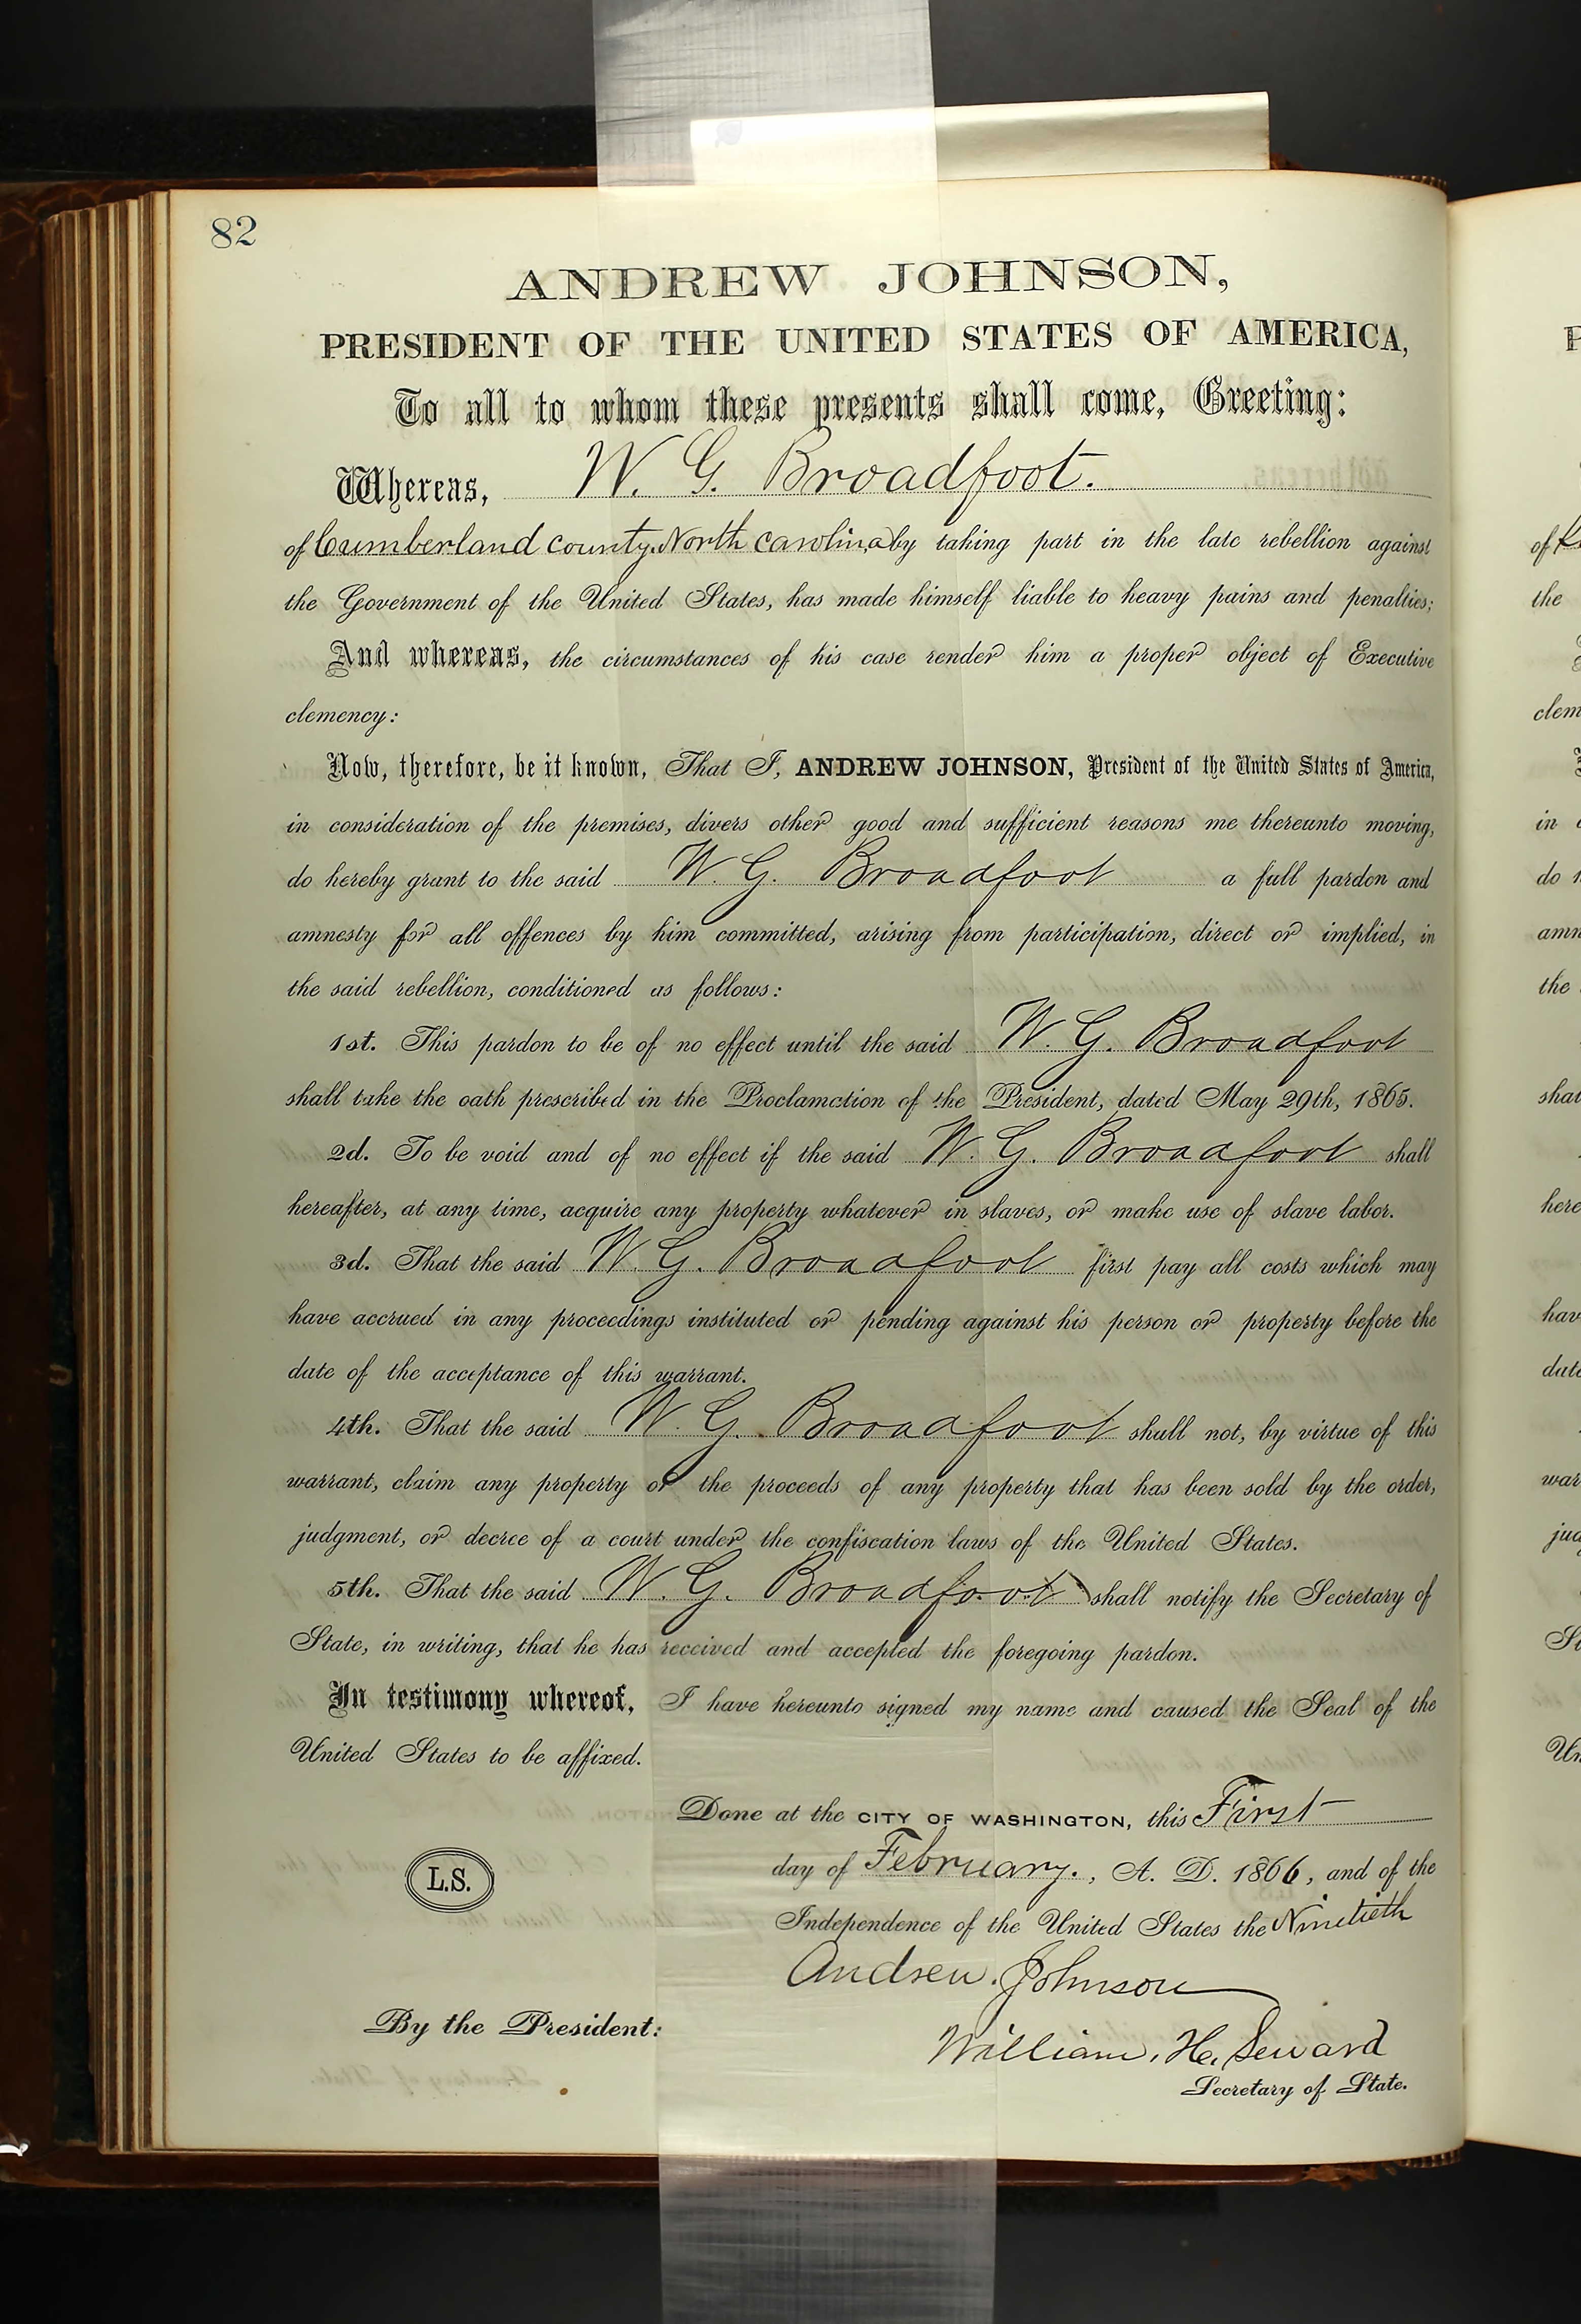 82
ANDREW JOHNSON,
PRESIDENT OF THE UNITED STATES OF AMERICA,
To all to whom these presents shall come, Greeting:
Whereas, W. G. Broadfoot.
of Cumberland county, North Carolina by taking part in the late rebellion against
the Government of the United States, has made himself liable to heavy pains and penalties;
And whereas, the circumstances of his case render him a proper object of Executive
clemency:
Now, therefore, be it known, That I, ANDREW JOHNSON, President of the United States of America,
in consideration of the premises, divers other good and sufficient reasons me thereunto moving,
do hereby grant to the said W. G. Broadfoot a full pardon and
amnesty for all offences by him committed, arising from participation, direct or implied, in
the said rebellion, conditioned as follows:
1st. This pardon to be of no effect until the said W. G. Broadfoot
shall take the oath prescribed in the Proclamation of the President, dated May 29th, 1865.
2d. To be void and of no effect if the said W. G. Broadfoot shall
hereafter, at any time, acquire any property whatever in slaves, or make use of slave labor.
3d. That the said W. G. Broadfoot first pay all costs which may
have accrued in any proceedings instituted or pending against his person or property before the
date of the acceptance of this warrant.
4th. That the said W. G. Broadfoot shall not, by virtue of this
warrant, claim any property or the proceeds of any property that has been sold by the order,
judgment, or decree of a court under the confiscation laws of the United States.
5th. That the said W. G. Broadfoot shall notify the Secretary of
State, in writing, that he has received and accepted the foregoing pardon.
In testimony whereof, I have hereunto signed my name and caused the Seal of the
United States to be affixed.
Done at the CITY OF WASHINGTON, this First
day of February., A. D. 1866, and of the
L.S.
Independence of the United States the Ninetieth
Andrew. Johnson
By the President:
William. H. Seward
Secretary of State.